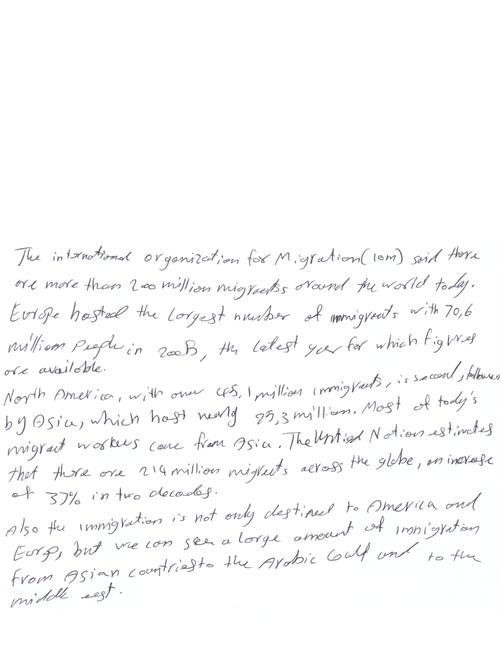 The international organization for Migration (iom) said there
are more than 200 million migrants around the world today.
Europe hosted the largest number of immigrants with 70,6
million people in 2005, the latest year for which figures
are available.
North America, with over 45,1 million immigrants, is second, followed
by Asia, which host nearly 25,3 million. Most of today's
migrant workers come from Asia. The United Nation estimates
that there are 214 million migrants across the globe, an increase
of 37% in two decades.
Also the immigration is not only destined to America and
Europ, but we can see a large amount of immigration
from Asian countries to the Arabic Gulf and to the
middle east.